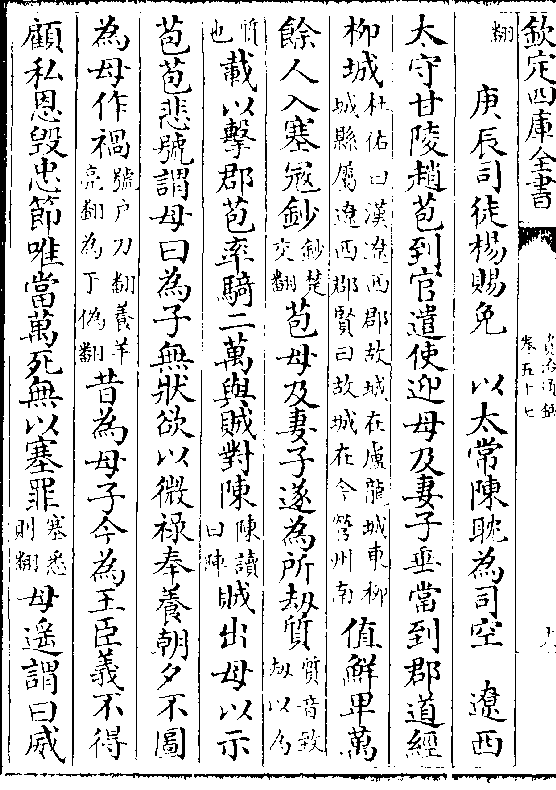 欽定四庫全書
資治通鑑
卷五十七
翻 庚辰司徒楊賜免 以太常陳耽為司空 遼西
太守甘陵趙苞到官遣使迎母及妻子垂當到郡道經
柳城杜佑曰漢遼西郡故城在盧龍城東柳城縣屬遼西郡賢曰故城在今營州南值鮮卑萬
餘人入塞冦鈔鈔楚交翻苞母及妻子遂為所劫質質音致劫以為
質也載以擊郡苞率騎二萬與賊對陳陳讀曰陣賊出母以示
苞苞悲號謂母曰為子無狀欲以微禄奉養朝夕不圖
為母作禍號户刀翻養羊亮翻為于偽翻昔為母子今為王臣義不得
顧私恩毁忠節唯當萬死無以塞罪塞悉則翻母遥謂曰威